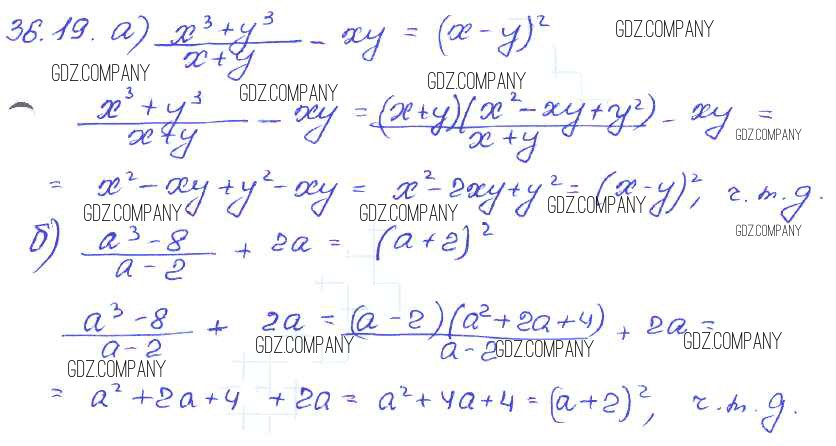 36.19. а) (x³+y³)/(x+y) - xy = (x-y)² GDZ.COMPANY
GDZ.COMPANY GDZ.COMPANY GDZ.COMPANY
(x³+y³)/(x+y) - xy = (x+y)(x²-xy+y²)/(x+y) - xy = GDZ.COMPANY
= x²-xy+y²-xy = x²-2xy+y² = (x-y)², ч.т.д.
GDZ.COMPANY GDZ.COMPANY GDZ.COMPANY GDZ.COMPANY
б) (a³-8)/(a-2) + 2a = (a+2)²
(a³-8)/(a-2) + 2a = (a-2)(a²+2a+4)/(a-2) + 2a =
GDZ.COMPANY GDZ.COMPANY GDZ.COMPANY GDZ.COMPANY
= a²+2a+4 +2a = a²+4a+4 = (a+2)², ч.т.д.